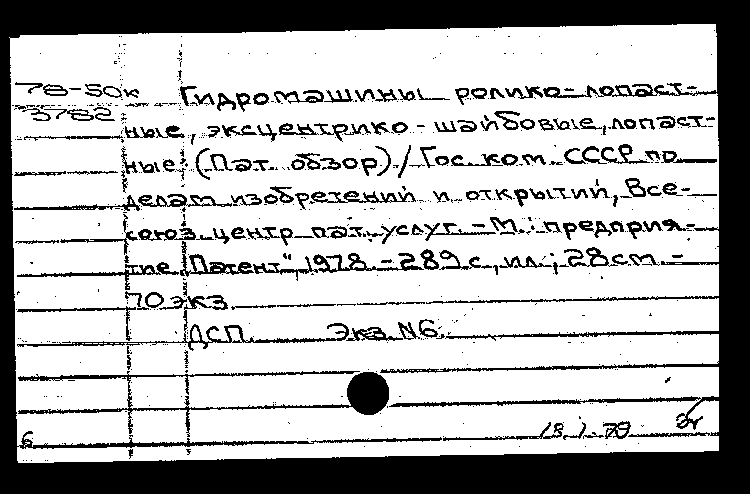 78-50к Гидромашины ролико-лопаст-
3782
ные, эксцентрико-шайбовые, лопаст-
ные: (Пат. обзор) / Гос. ком. СССР по
делам изобретений и открытий, Все-
союз. центр пат. услуг. - М.: предприя-
тие "Патент", 1978. - 289 с., ил.; 28 см. -
70 экз.
ДСП. Экз. N6.
18.1.79
6